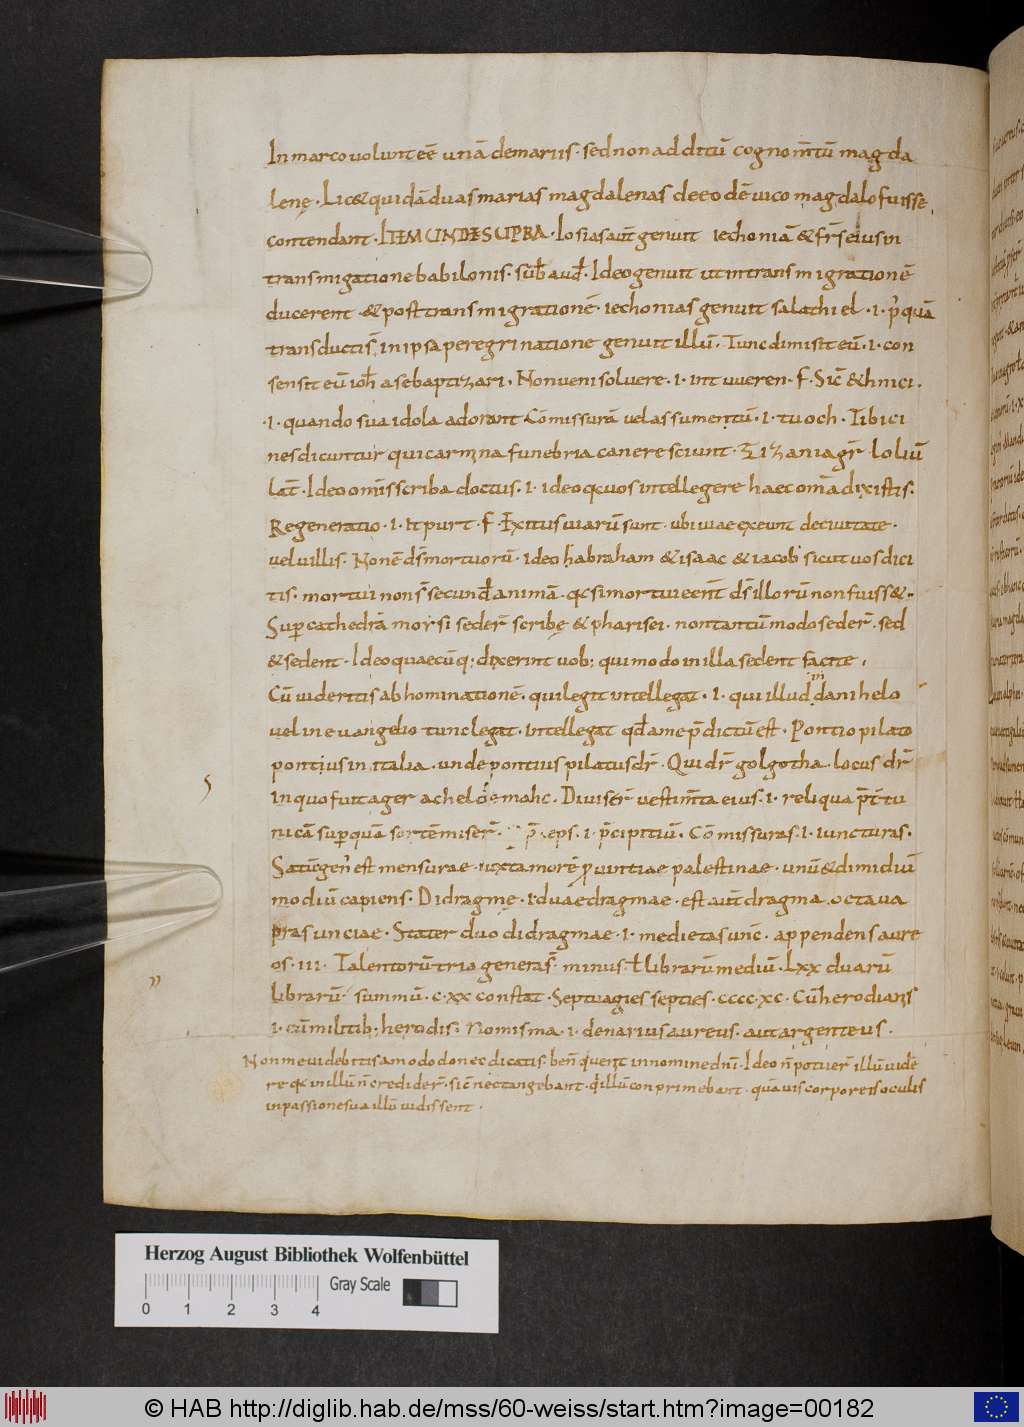 In marco volunt eē unā de mariis. sed non additū cognom̄tū magda
lenę. Lic& quidā duas marias magdalenas de eodē vico magdalo fuisse
contendant. ITEM UNDE SUPRA. Iosias aut̄ genuit iechoniā & fr̄s eius in
transmigatione babilonis. sub auđ. Ideo genuit ut in transmigrationē
ducerent. & post transmigrationē. iechonias genuit salathiel. i. p̓quā
transductiś in ipsa peregrinatione genuit illū. Tunc dimisit eū. i. con
sensit eū ioħ a se baptizari. Non veni solvere. i. int vueren. f. Sic̄ & hnici.
.i. quando sua idola adorant Cōmissurā vel assumentū. i. tuoch. Tibici
nes dicuntur qui carmna funebria canere sciunt. Zizania gr̄. loliū
lat̄. Ideo omīs scriba doctus. i. ideo qđ vos intellegere haec om̄a dixistis.
Regeneratio. i. it purt. f. Exitus viarū sunt. ubi viae exeunt de civitate.
vel villis. Non ē dś mortuorū. ideo habraham & isaac & iacob sicut vos dici
tis. mortui non ś secund̄ animā. qđ si mortui eent̄ dś illorū non fuiss&..
Sup cathedrā morsi seder̄ scribę & pharisei. non tantū modo seder̄. sed
& sedent. Ideo quaecūq; dixerint vob; qui modo in illa sedent facite.
in
Cū videritis abhominationē. qui legit intellegat. i. qui illud danihelo
vel in evangelio tunc legat. intellegat qđ a me p̄dictū est. Pontio pilato
pontius in italia. unde pontius pilatus dr̄. Qui dr̄ golgotha. locus dr̄
In quo fuit ager acheldemahc. Diviser̄ vestim̄ta eius. i. reliqua p̄t̄ tu
nicā sup quā sortē miser̄. p̄ceps. i. p̄cipitiū. Cōmissuras. i. iuncturas.
Satū gen̄ est mensurae. iuxta morē pvintiae palestinae. unū & dimidiū
modiū capiens. Didragme. i. duae dragmae. est aut̄ dragma. octava
pras unciae. Stater duo didragmae. i. medietas unc̄. appendens aure
os. iii. Talentorū tria generaś. minus. ł librarū mediū. Lxx duarū
librarū. summū. c. xx constat. Septuagies septies. cccc. xc. Cū herodianś
i. cū militib; herodis. Nomisma. i. denarius aureus. aut argenteus.
Non me videbitis amodo donec dicatis. ben̄ q̇ venit in nomine dn̄i. Ideo n̄ potuer̄ illū vidē
re qđ in illū n̄ credider̄. sic̄ nec tangebant. qđ illū conprimebant. quāvis corporeis oculis
in passione sua illū vidissent.
Herzog August Bibliothek Wolfenbüttel
Gray Scale
0 1 2 3 4
© HAB http://diglib.hab.de/mss/60-weiss/start.htm?image=00182